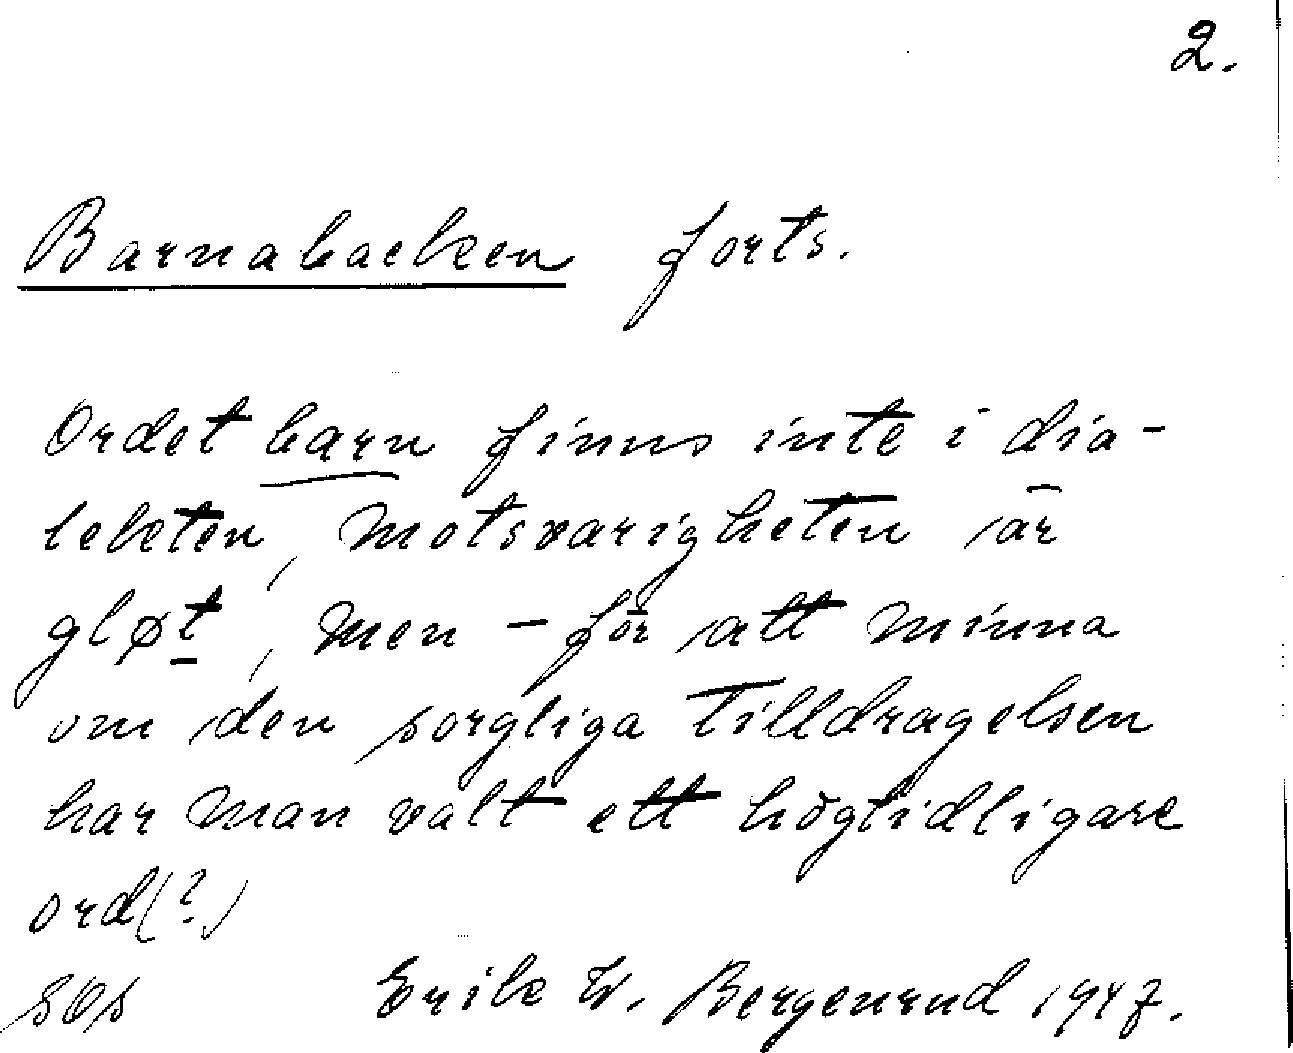 2.
Barnabacken forts.
Ordet barn finns inte i dia-
lekten, motsvarigheten är
gløt, men - för att minna
om den sorgliga tilldragelsen
har man valt ett högtidligare
ord(?)
Erik W. Bergenrud 1947.